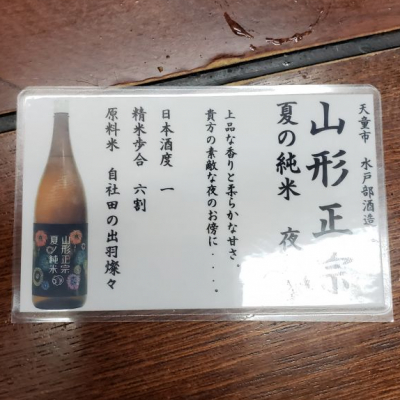 天童市 水戸部酒造
山形正宗
夏の純米 夜
上品な香りと柔らかな甘さ、
貴方の素敵な夜のお傍に・・・。
日本酒度 一
精米歩合 六割
原料米 自社田の出羽燦々
山形正宗
夏の純米